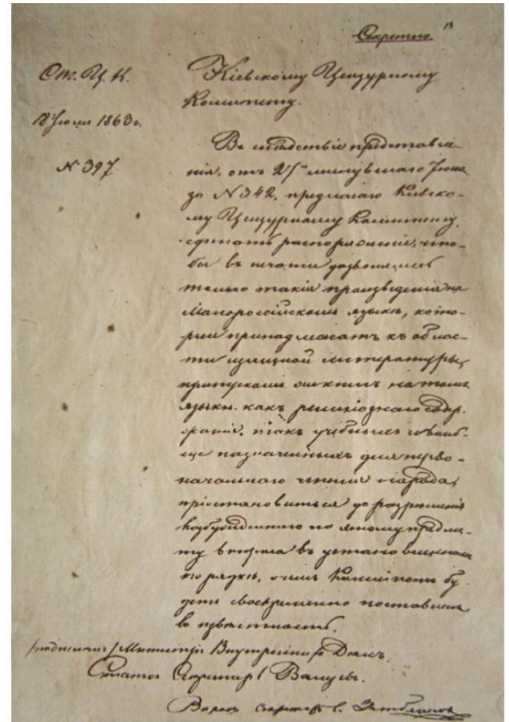 Секретно
От. Ц. К.
18 Іюля 1863 г.
№ 397
Кіевскому Цензурному
Комитету.
Въ слѣдствіе представле-
нія, отъ 27 минувшаго Іюня
за № 342, предлагаю Кіевско-
му Цензурному Комитету,
сдѣлать распоряженіе, что-
бы въ печати дозволялись
только такія произведенія на
Малороссійскомъ языкѣ, кото-
рыя принадлежатъ къ облас-
ти изящной литературы,
пропускомъ же книгъ на томъ
языкѣ какъ религіознаго содер-
жанія, такъ учебныхъ и вооб-
ще назначенныхъ для перво-
начальнаго чтенія народа,
пріостановиться до разрѣшенія
возбужденнаго по этому предме-
ту вопроса въ установленномъ
порядкѣ, о чемъ Комитетъ бу-
детъ своевременно поставленъ
въ извѣстность.
(подписалъ) Министръ Внутреннихъ Дѣлъ,
Статсъ Секретарь Валуевъ.
секретарь